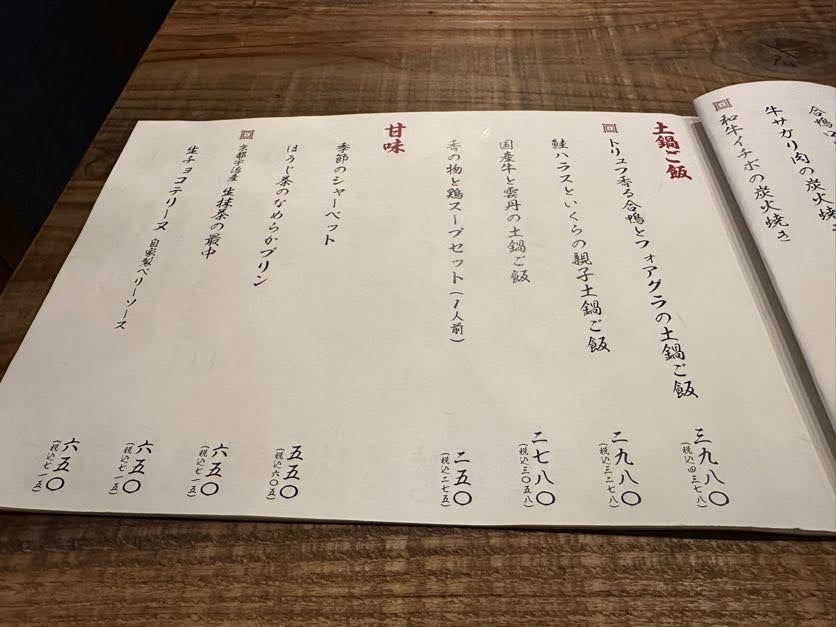 合鴨
牛サガリ肉の炭火焼
和牛イチボの炭火焼き
土鍋ご飯
トリュフ香る合鴨とフォアグラの土鍋ご飯 三九八〇
(税込四三七八)
鮭ハラスといくらの親子土鍋ご飯 二九八〇
(税込三二七八)
国産牛と雲丹の土鍋ご飯 二七八〇
(税込三〇五八)
香の物と鶏スープセット(1人前) 二五〇
(税込二七五)
甘味
季節のシャーベット 五五〇
(税込六〇五)
ほうじ茶のなめらかプリン 六五〇
(税込七一五)
京都宇治産 生抹茶の最中 六五〇
(税込七一五)
生チョコテリーヌ 自家製ベリーソース 六五〇
(税込七一五)